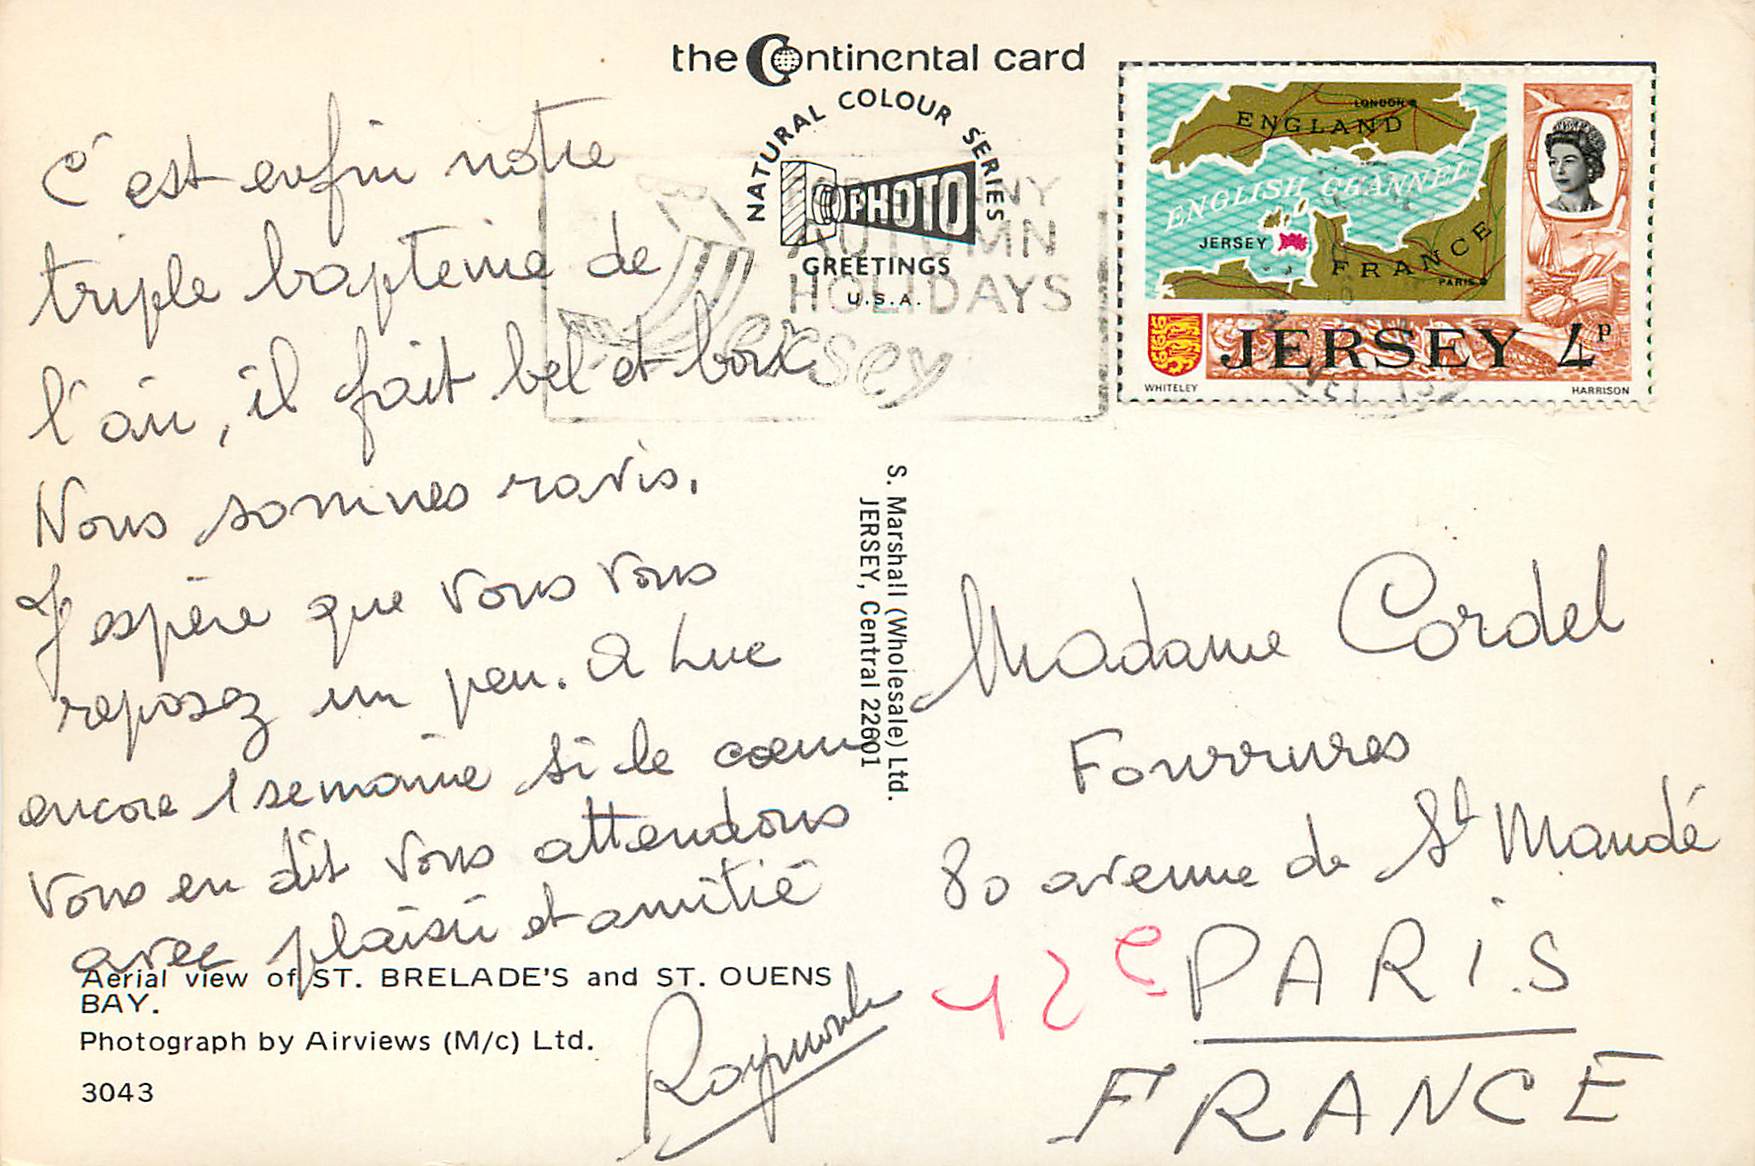 the Continental card
NATURAL COLOUR SERIES
PHOTO
GREETINGS
U.S.A.
AUTUMN
HOLIDAYS
Jersey
ENGLAND
LONDON
ENGLISH CHANNEL
JERSEY
FRANCE
PARIS
JERSEY 4P
WHITELEY
HARRISON
C'est enfin notre
triple bapteme de
l'air, il fait bel et bon
Nous sommes ravis.
J'espère que vous vous
reposez un peu. A Luc
encore 1 semaine si le coeur
vous en dit vous attendons
avec plaisir et amitié
Raymonde
S. Marshall (Wholesale) Ltd.
JERSEY, Central 22601
Madame Cordel
Fourrures
80 avenue de St Mandé
12e PARIS
FRANCE
Aerial view of ST. BRELADE'S and ST. OUENS
BAY.
Photograph by Airviews (M/c) Ltd.
3043